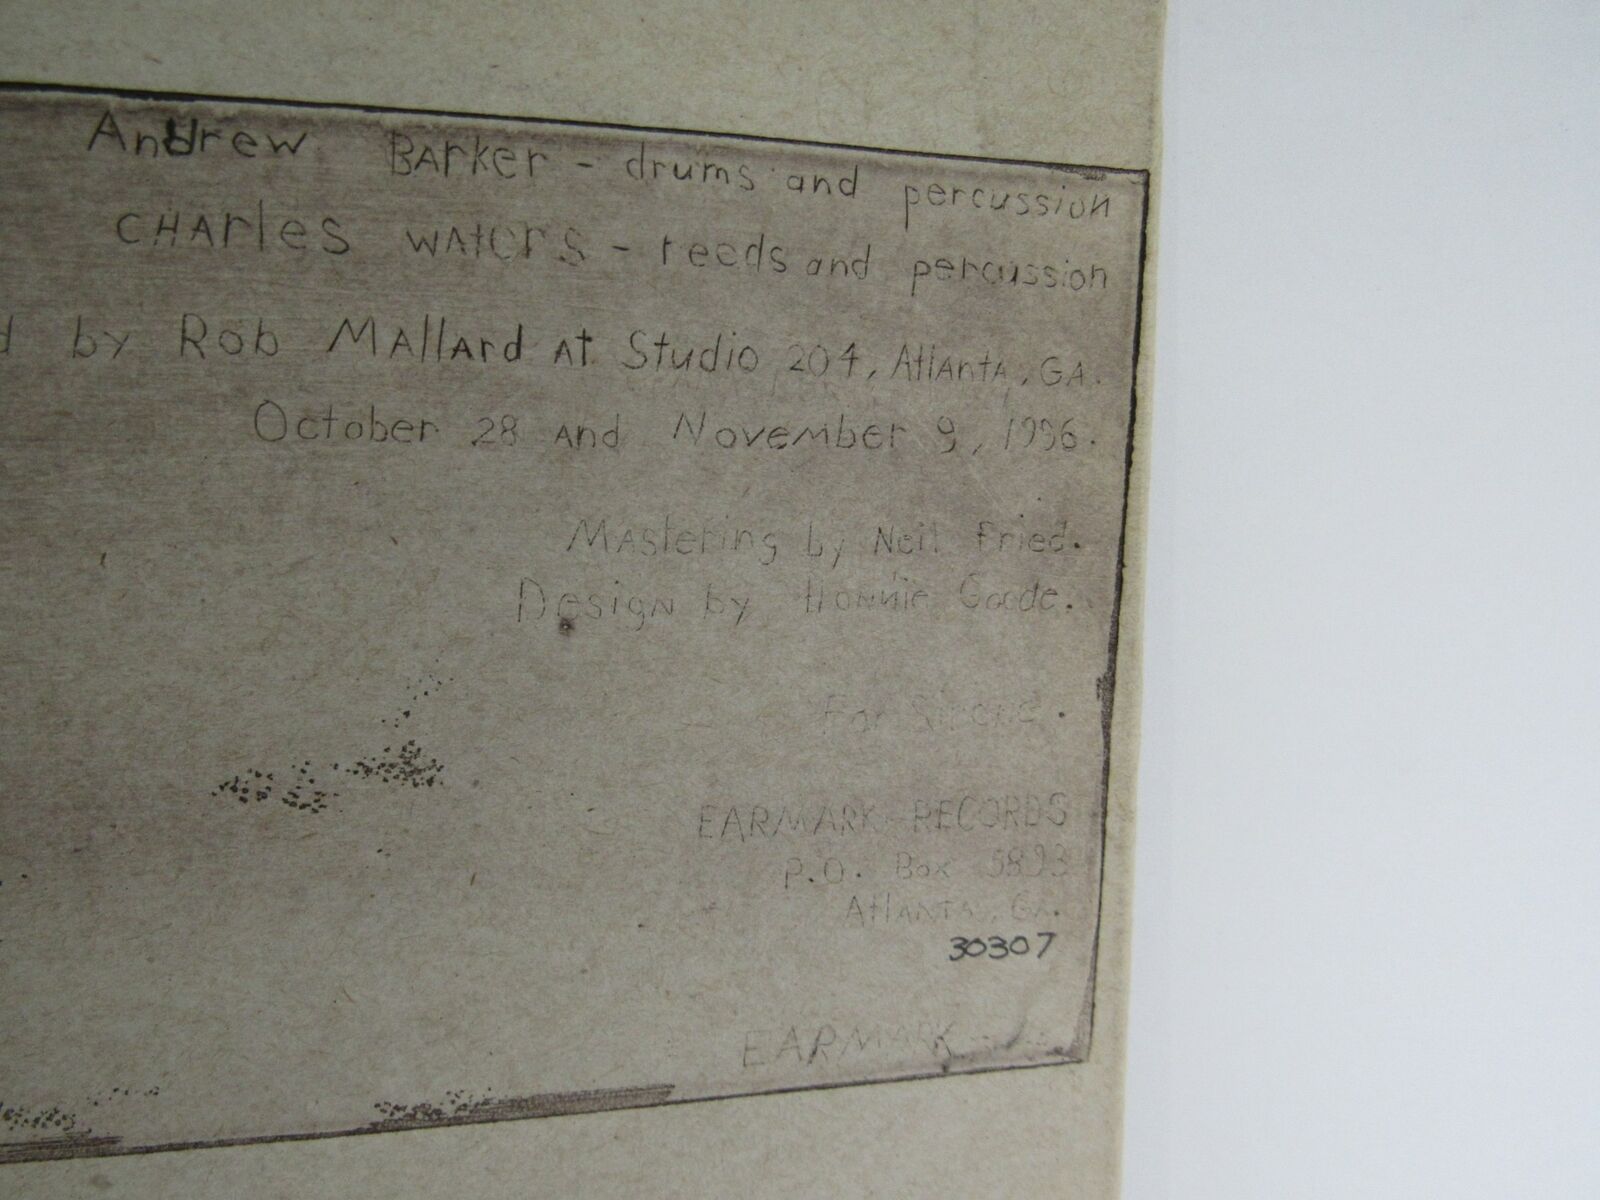 Andrew Barker - drums and percussion
CHArles WAters - reeds and percussion
by Rob MAllArd At Studio 204, AtlAntA, GA.
October 28 And November 9, 1996.
MAstering by Neil Fried.
Design by Goode.
For
EARMARK RECORDS
P.O. Box 5893
AtlAntA, GA.
30307
EARMARK